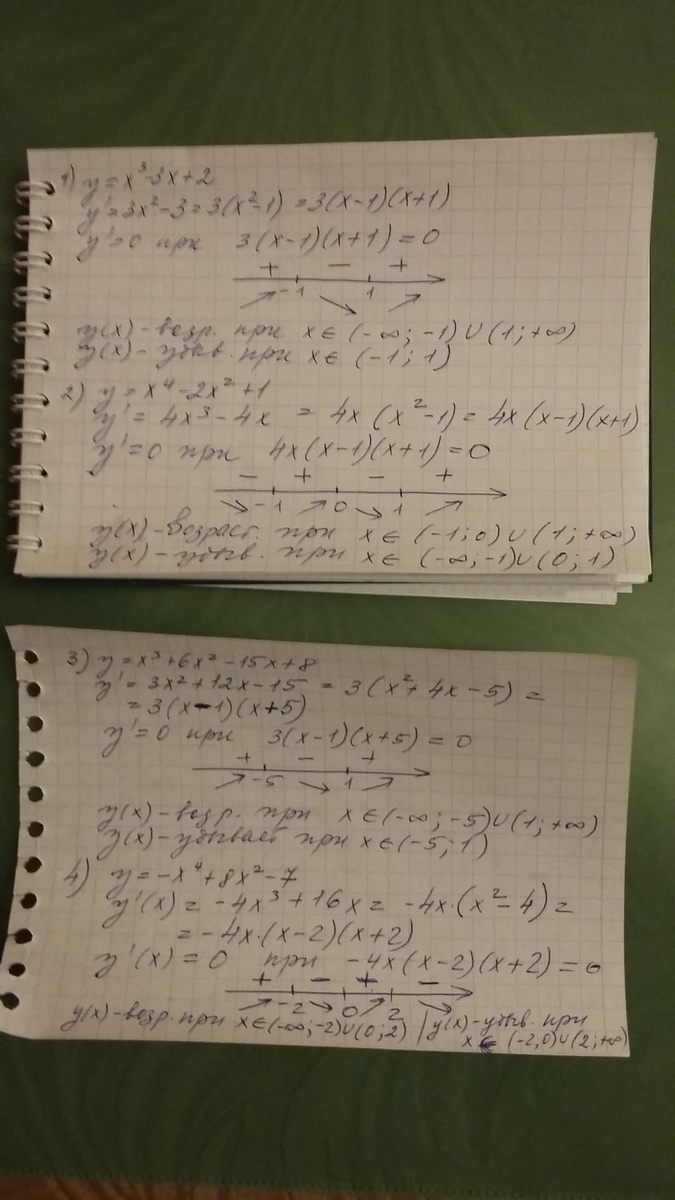 1) y = x³-3x+2
y' = 3x²-3 = 3(x²-1) = 3(x-1)(x+1)
y'=0 при 3(x-1)(x+1) = 0
+ - +
-1 1
y(x) - возр. при x ∈ (-∞; -1) ∪ (1; +∞)
y(x) - убыв. при x ∈ (-1; 1)
2) y = x⁴-2x²+1
y' = 4x³-4x = 4x(x²-1) = 4x(x-1)(x+1)
y'=0 при 4x(x-1)(x+1) = 0
- + - +
-1 0 1
y(x) - возраст. при x ∈ (-1; 0) ∪ (1; +∞)
y(x) - убыв. при x ∈ (-∞; -1) ∪ (0; 1)
3) y = x³+6x²-15x+8
y' = 3x²+12x-15 = 3(x²+4x-5) =
= 3(x-1)(x+5)
y'=0 при 3(x-1)(x+5) = 0
+ - +
-5 1
y(x) - возр. при x ∈ (-∞; -5) ∪ (1; +∞)
y(x) - убывает при x ∈ (-5; 1)
4) y = -x⁴+8x²-7
y'(x) = -4x³+16x = -4x·(x²-4) =
= -4x·(x-2)(x+2)
y'(x) = 0 при -4x(x-2)(x+2) = 0
+ - + -
-2 0 2
y(x) - возр. при x ∈ (-∞; -2) ∪ (0; 2) | y(x) - убыв. при
x ∈ (-2; 0) ∪ (2; +∞)